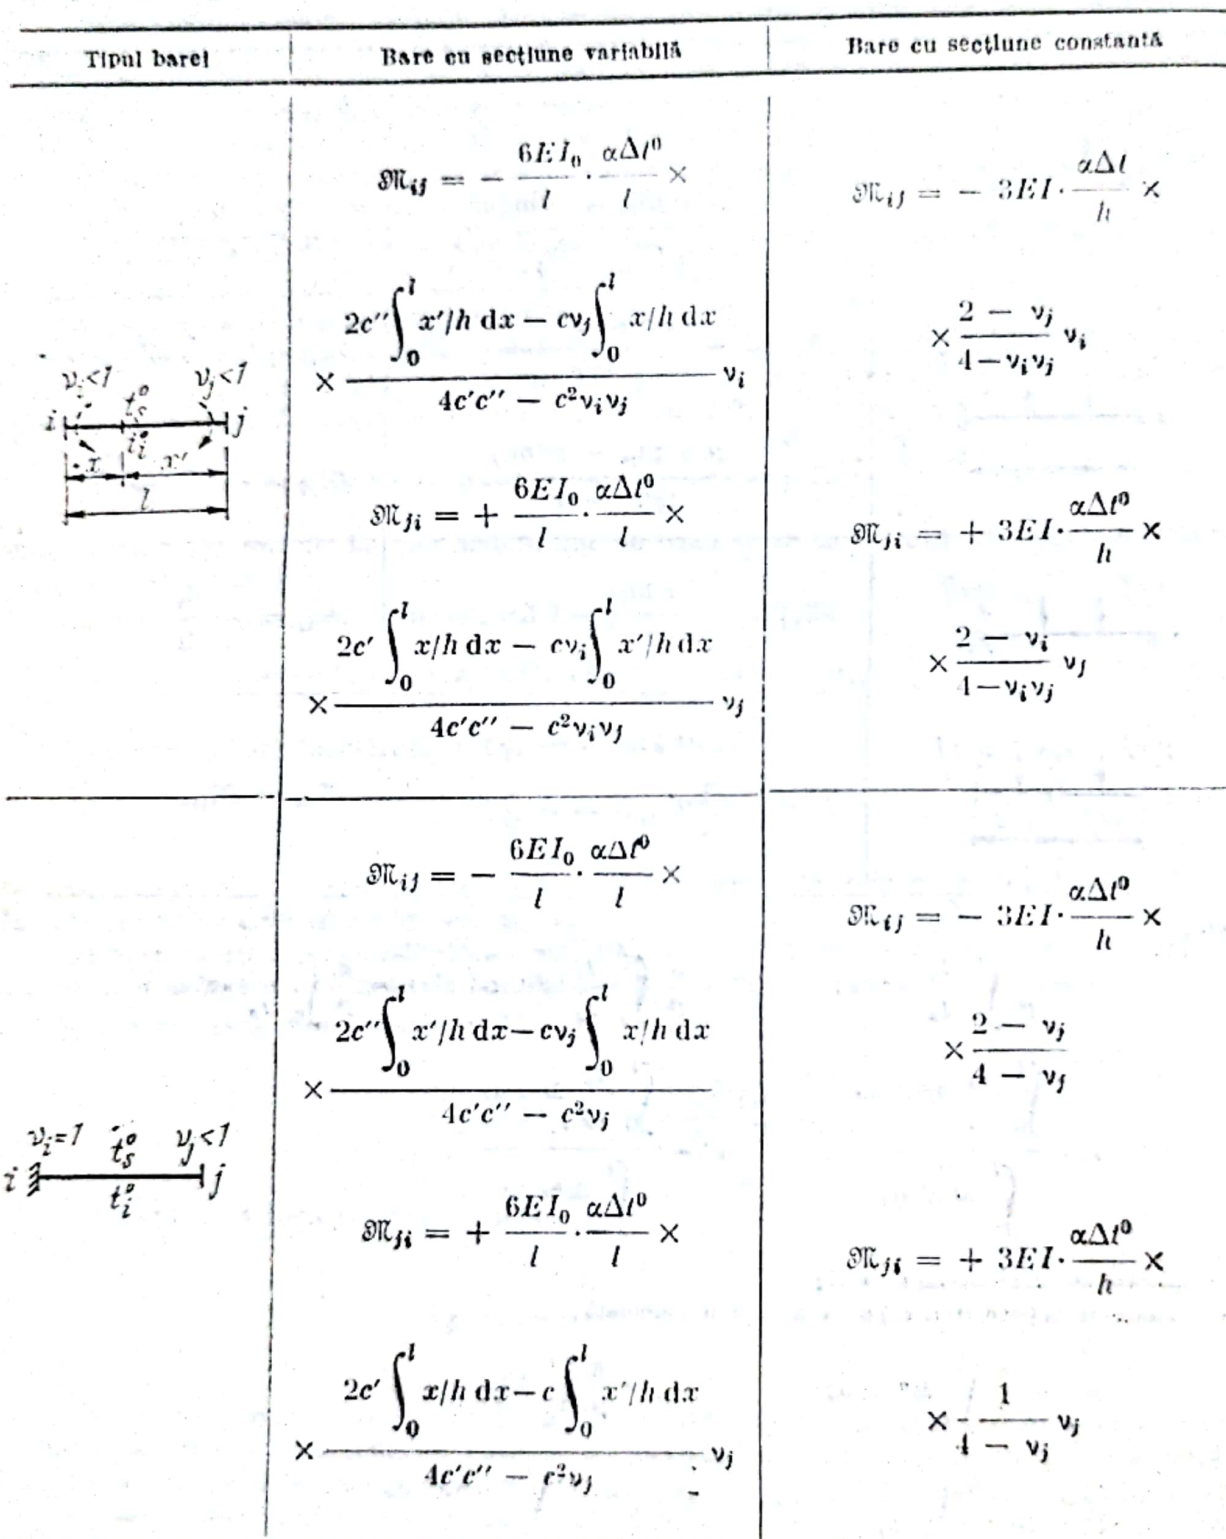 Tipul barei | Bare cu secțiune variabilă | Bare cu secțiune constantă
𝔐ᵢⱼ = − 6EI₀/l · αΔt⁰/l ×
× (2c″ ∫₀ˡ x′/h dx − cνⱼ ∫₀ˡ x/h dx) / (4c′c″ − c²νᵢνⱼ) νᵢ
𝔐ⱼᵢ = + 6EI₀/l · αΔt⁰/l ×
× (2c′ ∫₀ˡ x/h dx − cνᵢ ∫₀ˡ x′/h dx) / (4c′c″ − c²νᵢνⱼ) νⱼ
𝔐ᵢⱼ = − 3EI · αΔt/h ×
× (2 − νⱼ)/(4 − νᵢνⱼ) νᵢ
𝔐ⱼᵢ = + 3EI · αΔt⁰/h ×
× (2 − νᵢ)/(4 − νᵢνⱼ) νⱼ
νᵢ<1 νⱼ<1
tₛ°
i j
tᵢ°
x x′
l
𝔐ᵢⱼ = − 6EI₀/l · αΔt⁰/l ×
× (2c″ ∫₀ˡ x′/h dx − cνⱼ ∫₀ˡ x/h dx) / (4c′c″ − c²νⱼ)
𝔐ⱼᵢ = + 6EI₀/l · αΔt⁰/l ×
× (2c′ ∫₀ˡ x/h dx − c ∫₀ˡ x′/h dx) / (4c′c″ − c²νⱼ) νⱼ
𝔐ᵢⱼ = − 3EI · αΔt⁰/h ×
× (2 − νⱼ)/(4 − νⱼ)
𝔐ⱼᵢ = + 3EI · αΔt⁰/h ×
× 1/(4 − νⱼ) νⱼ
νᵢ=1 tₛ° νⱼ<1
i j
tᵢ°